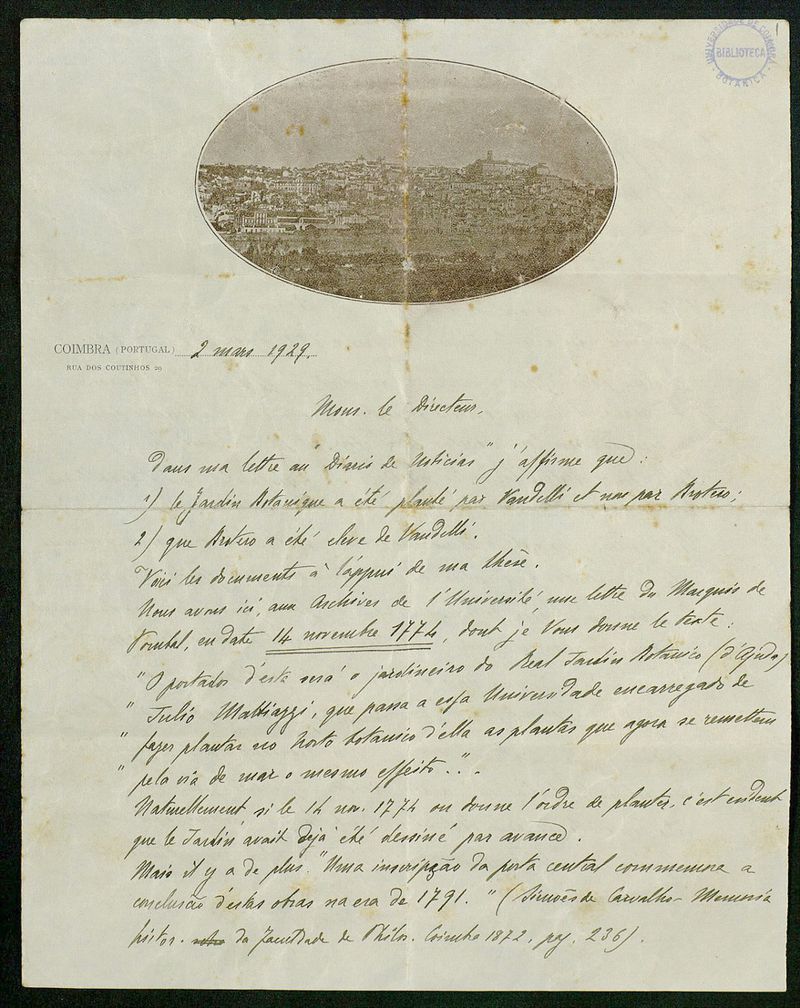 1
UNIVERSIDADE DE COIMBRA
BIBLIOTECA
BOTANICA
COIMBRA (PORTUGAL) 2 mars 1929.
RUA DOS COUTINHOS 20
Mons. le Directeur,
Dans ma lettre au "Diario de Noticias" j'affirme que:
1) le Jardin Botanique a été planté par Vandelli et non par Brotero;
2) que Brotero a été eleve de Vandelli.
Voici les documents à l'appui de ma thèse.
Nous avons ici, aux Archives de l'Université, une lettre du Marquis de
Pombal, en date 14 novembre 1774, dont je Vous donne le texte:
"O portador d'esta será o jardineiro do Real Jardin Botanico (d'Ajuda)
" Julio Mattiazzi, que passa a essa Universidade encarregado de
" fazer plantar no Horto botanico d'ella as plantas que agora se remettem
" pela via de mar o mesmo effeito..".
Naturellement, si le 14 nov. 1774 on donne l'ordre de planter, c'est evident
que le Jardin avait dejà été dessiné par avance.
Mais il y a de plus. "Uma inscripção da porta central commemora a
conclusão d'estas obras na era de 1791." (Simões de Carvalho - Memoria
histor. da Faculdade de Philos. Coimbra 1872, pag. 236).